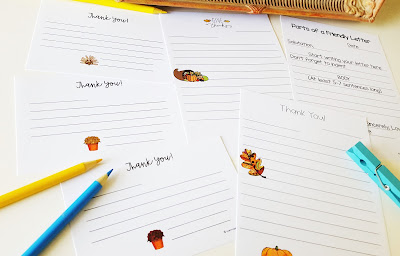 Thank You!
Thank You!
Thank You!
Thank You!
Parts of a Friendly Letter
Salutation,
Date
Start writing your letter here.
Don't forget to indent.
BODY
(At least 5-7 sentences long)